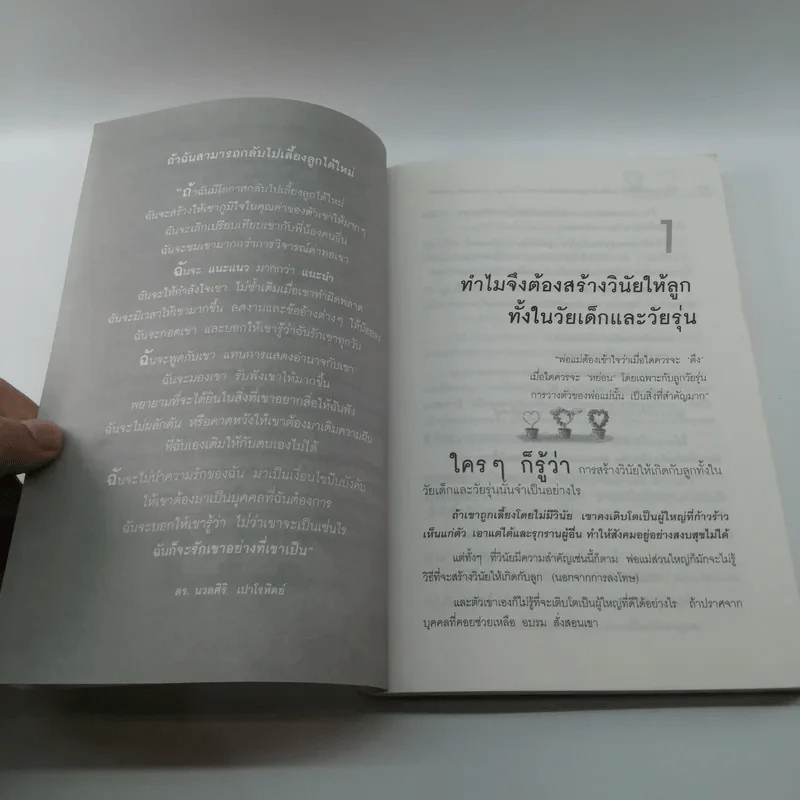 ถ้าฉันสามารถกลับไปเลี้ยงลูกได้ใหม่
"ถ้าฉันมีโอกาสกลับไปเลี้ยงลูกได้ใหม่
ฉันจะสร้างให้เขาภูมิใจในคุณค่าของตัวเขาให้มากๆ
ฉันจะเลิกเปรียบเทียบเขากับพี่น้องคนอื่น
ฉันจะชมเขามากกว่าการวิจารณ์ค่าทอเขา
ฉันจะ แนะแนว มากกว่า แนะนำ
ฉันจะให้กำลังใจเขา ไม่ซ้ำเติมเมื่อเขาทำผิดพลาด
ฉันจะมีเวลาให้เขามากขึ้น ลดงานและข้ออ้างต่างๆ ให้น้อยลง
ฉันจะกอดเขา และบอกให้เขารู้ว่าฉันรักเขาทุกวัน
ฉันจะพูดกับเขา แทนการแสดงอำนาจกับเขา
ฉันจะมองเขา รับฟังเขาให้มากขึ้น
พยายามที่จะได้ยินในสิ่งที่เขาอยากสื่อให้ฉันฟัง
ฉันจะไม่ผลักดัน หรือคาดหวังให้เขาต้องมาเติมความฝัน
ที่ฉันเองเติมให้กับตนเองไม่ได้
ฉันจะไม่นำความรักของฉัน มาเป็นเงื่อนไขบีบบังคับ
ให้เขาต้องมาเป็นบุคคลที่ฉันต้องการ
ฉันจะบอกให้เขารู้ว่า ไม่ว่าเขาจะเป็นเช่นไร
ฉันก็จะรักเขาอย่างที่เขาเป็น"
ดร. นวลศิริ เปาโรหิตย์
1
ทำไมจึงต้องสร้างวินัยให้ลูก
ทั้งในวัยเด็กและวัยรุ่น
"พ่อแม่ต้องเข้าใจว่าเมื่อใดควรจะ 'ตึง'
เมื่อใดควรจะ 'หย่อน' โดยเฉพาะกับลูกวัยรุ่น
การวางตัวของพ่อแม่นั้น เป็นสิ่งที่สำคัญมาก"
ใครๆ ก็รู้ว่า การสร้างวินัยให้เกิดกับลูกทั้งใน
วัยเด็กและวัยรุ่นนั้นจำเป็นอย่างไร
ถ้าเขาถูกเลี้ยงโดยไม่มีวินัย เขาคงเติบโตเป็นผู้ใหญ่ที่ก้าวร้าว
เห็นแก่ตัว เอาแต่ได้และรุกรานผู้อื่น ทำให้สังคมอยู่อย่างสงบสุขไม่ได้
แต่ทั้งๆ ที่วินัยมีความสำคัญเช่นนี้ก็ตาม พ่อแม่ส่วนใหญ่ก็มักจะไม่รู้
วิธีที่จะสร้างวินัยให้เกิดกับลูก (นอกจากการลงโทษ)
และตัวเขาเองก็ไม่รู้ที่จะเติบโตเป็นผู้ใหญ่ที่ดีได้อย่างไร ถ้าปราศจาก
บุคคลที่คอยช่วยเหลือ อบรม สั่งสอนเขา